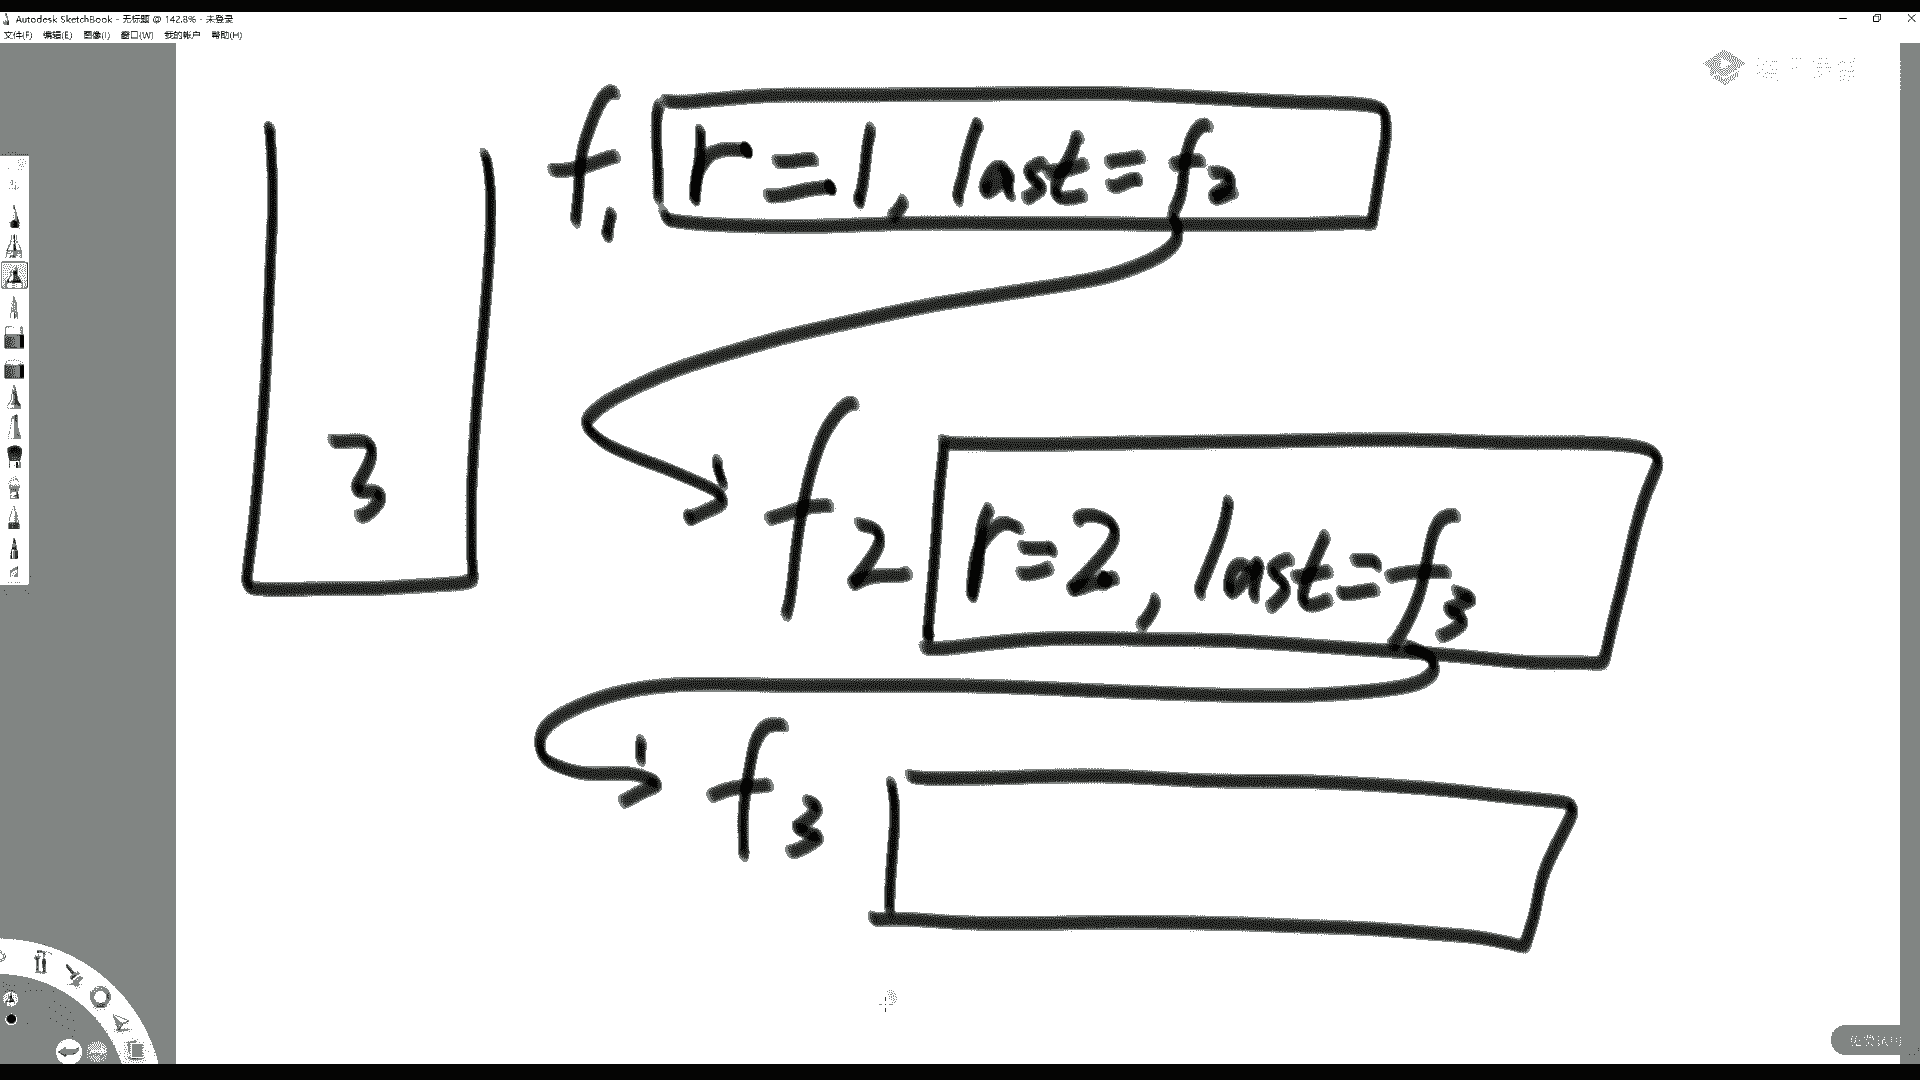 Autodesk SketchBook - 无标题 @ 142.8% - 未登录
文件(F) 编辑(E) 图像(I) 窗口(W) 我的帐户 帮助(H)
f1 r=1, last=f2
3
f2 r=2, last=f3
f3